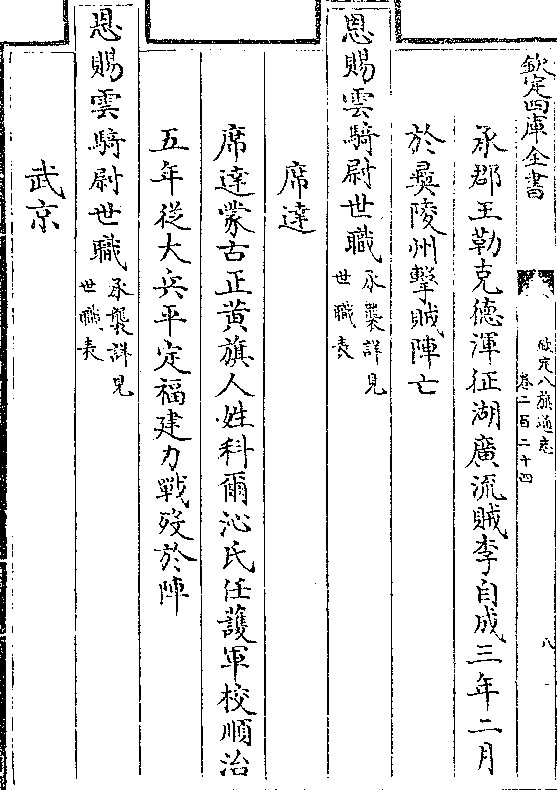 欽定四庫全書
欽定八旗通志
卷二百二十四
八
承郡王勒克德渾征湖廣流賊李自成三年二月
於彞陵州擊賊陣亡
恩賜雲騎尉世職承襲詳見
世職表
席達
席達蒙古正黃旗人姓科爾沁氏任護軍校順治
五年從大兵平定福建力戰歿於陣
恩賜雲騎尉世職承襲詳見
世職表
武京